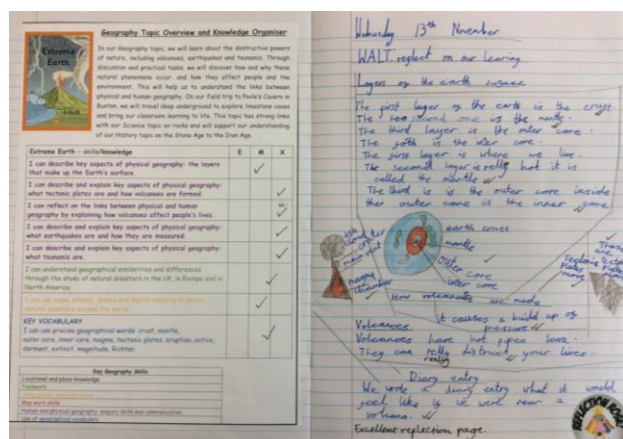 Geography Topic Overview and Knowledge Organiser
Extreme
Earth
In our Geography topic, we will learn about the destructive powers
of nature, including volcanoes, earthquakes and tsunamis. Through
discussion and practical tasks, we will discover how and why these
natural phenomena occur, and how they affect people and the
environment. This will help us to understand the links between
physical and human geography. On our field trip to Poole's Cavern in
Buxton, we will travel deep underground to explore limestone caves
and bring our classroom learning to life! This topic has strong links
with our Science topic on rocks and will support our understanding
of our History topic on the Stone Age to the Iron Age.
Extreme Earth - skills/knowledge E M X
I can describe key aspects of physical geography: the layers
that make up the Earth's surface.
I can describe and explain key aspects of physical geography:
what tectonic plates are and how volcanoes are formed.
I can reflect on the links between physical and human
geography by explaining how volcanoes affect people's lives.
I can describe and explain key aspects of physical geography:
what earthquakes are and how they are measured.
I can describe and explain key aspects of physical geography:
what tsunamis are.
I can understand geographical similarities and differences
through the study of natural disasters in the UK, in Europe and in
North America.
I can use maps, atlases, globes and digital mapping to locate
natural disasters around the world.
KEY VOCABULARY
I can use precise geographical words: crust, mantle,
outer core, inner core, magma, tectonic plates, eruption, active,
dormant, extinct, magnitude, Richter
Key Geography Skills
Locational and place knowledge
Fieldwork
Map work skills
Human and physical geography, enquiry skills and communication
Use of geographical vocabulary
Wednesday 13th November
WALT: reflect on our learing
Layers of the earth surface
The first layer of the earth is the crust
The second one is the mantle.
The third layer is the outer core.
The is the core.
The first layer is where we live.
The second layer is relly hot it is
called the mantle
The third is is the outer core inside
the outer core is the inner core
earth
mantle
outer core
core
main vent
magma
chamber
These
are
plates
Tectonic
plates
move
How volcanoes are made
it causes a build up of
pressure
Volcanoes
Volcanoes have hot lava.
They can relly your lives.
really
Diary entry
We wrote a diary entry what it would
feel like if we were near a
volcano.
Excellent reflection page.
REFLECTION